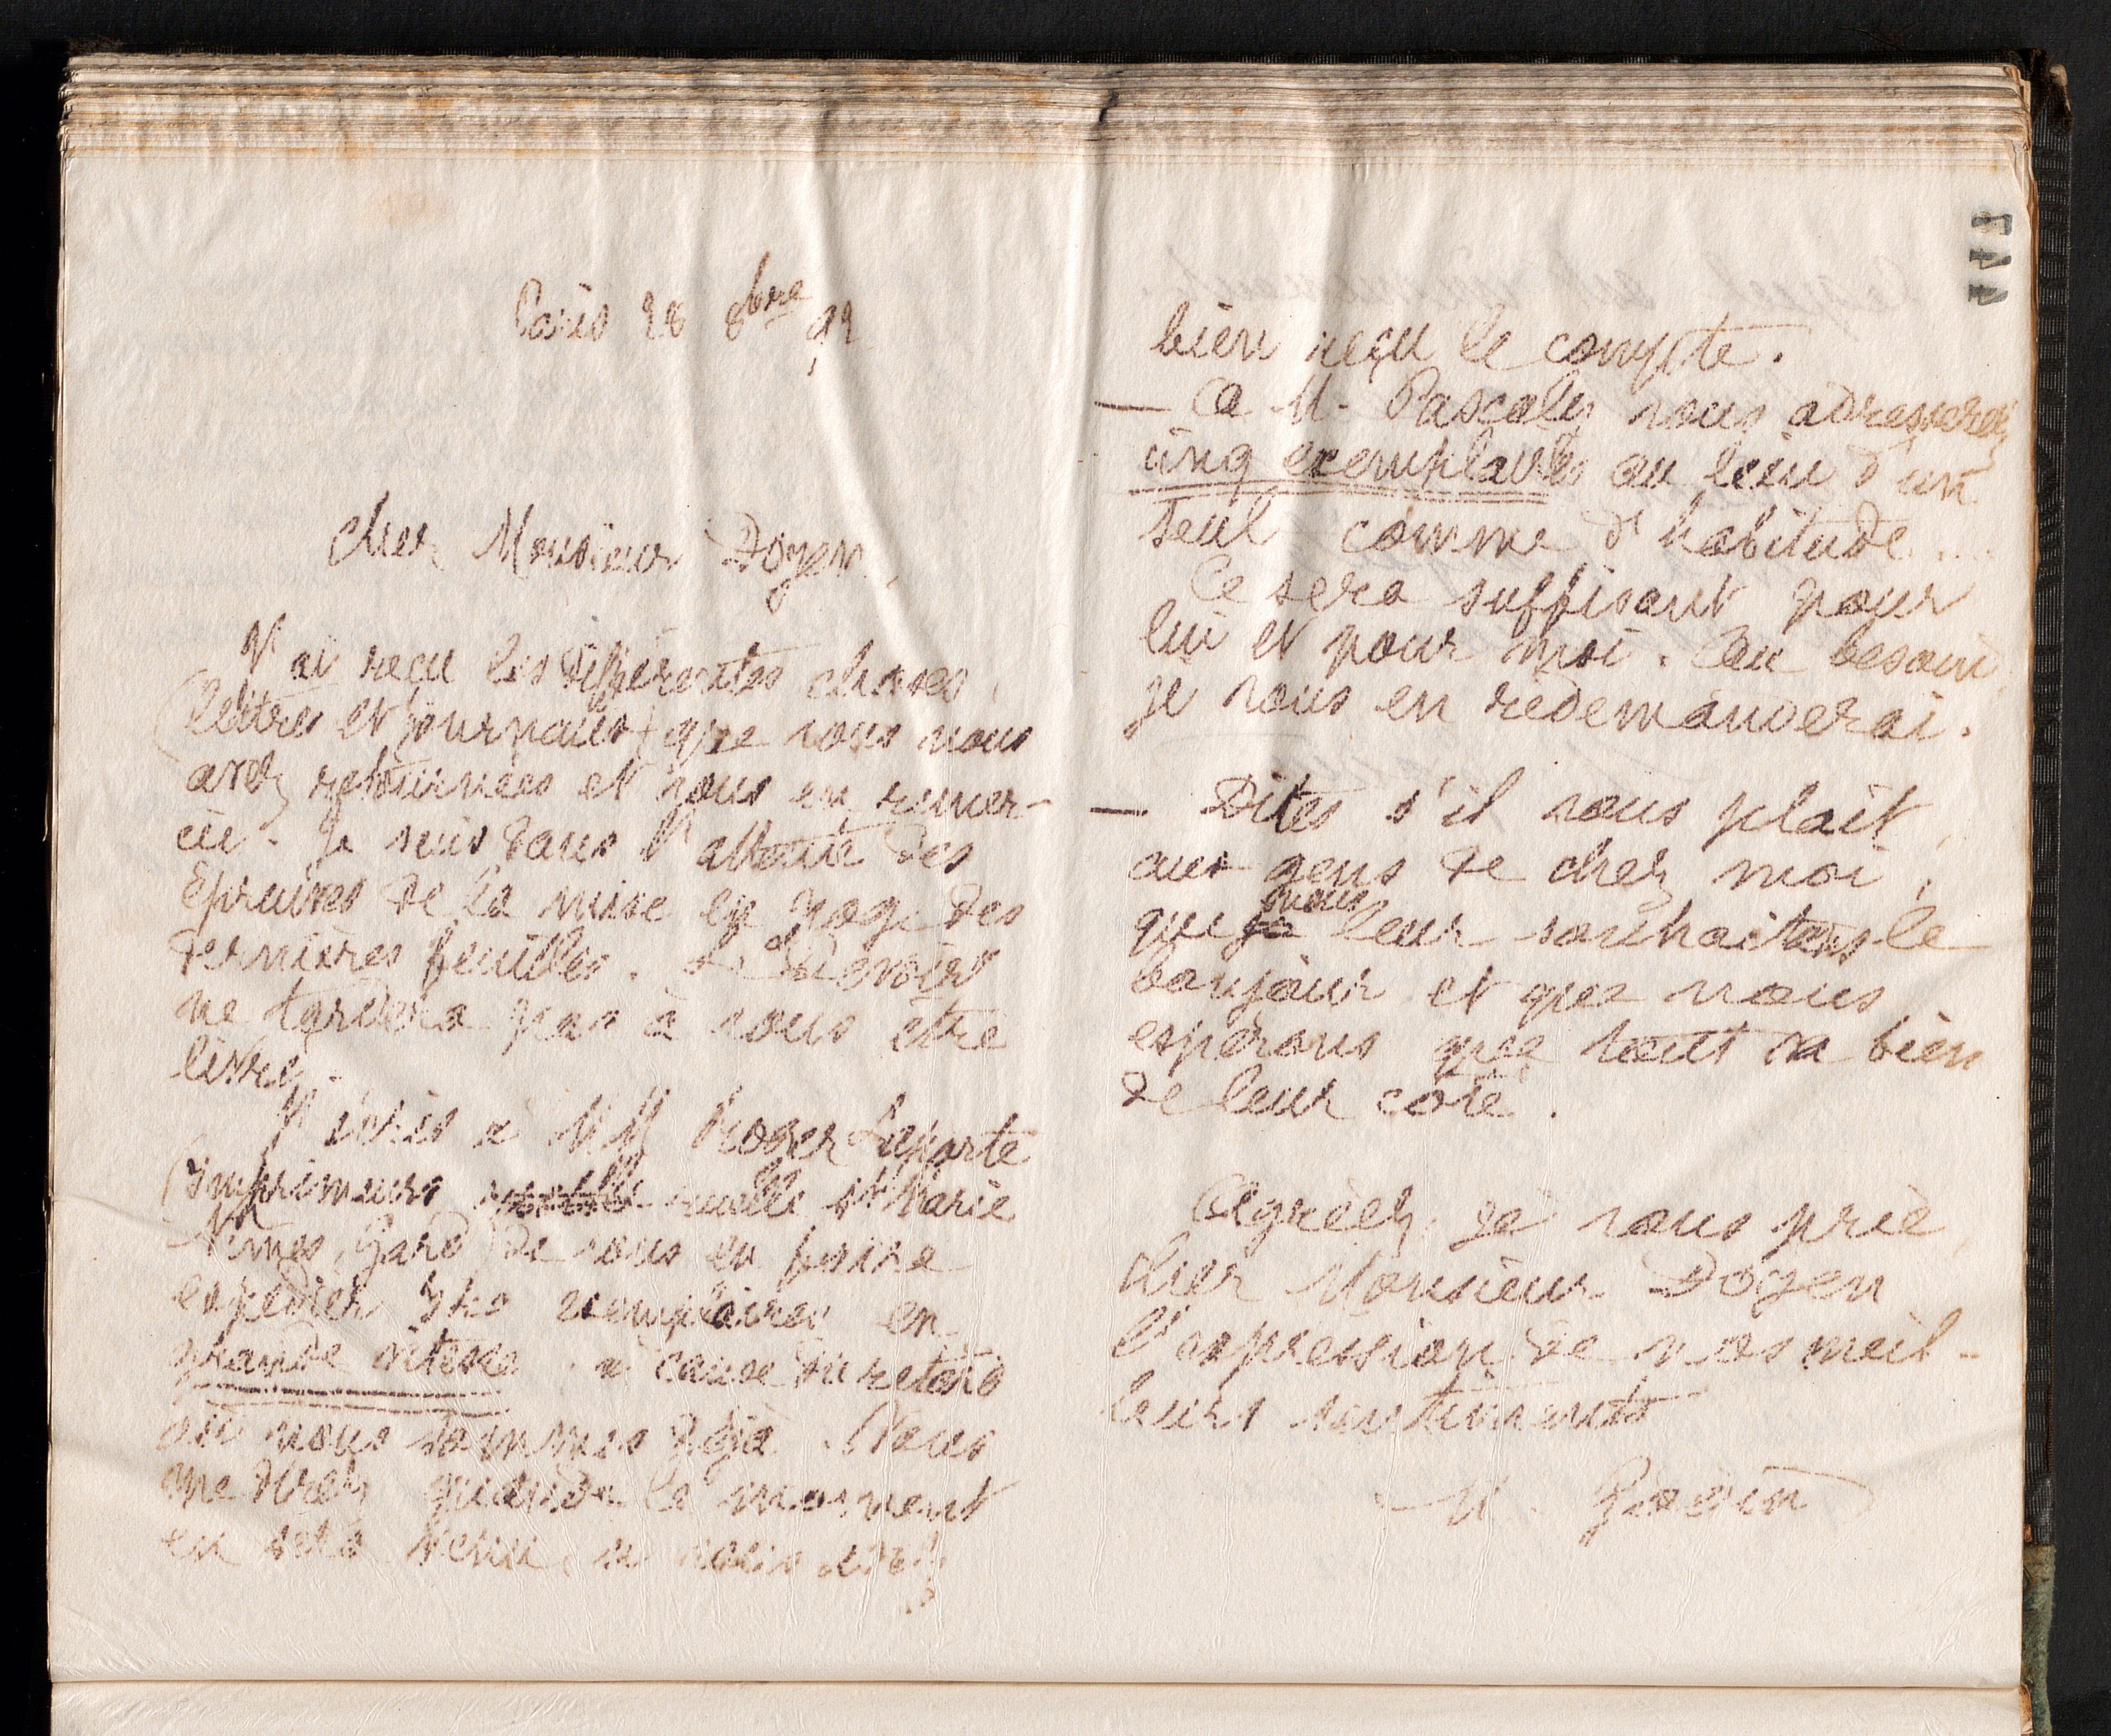 Paris 28 8bre 92
Cher Monsieur Doyen,
J'ai reçu les différentes choses,
(lettres et journaux) que vous nous
avez retournées et vous en remer-
cie. Je suis dans l'attente des
épreuves de la mise en page des
dernières feuilles. Le Devoir
ne tardera pas à vous être
livré.
J'écris à MM Roger Laporte
(Imprimeurs ruelle St Marie
Nîmes, Gard) de vous en faire
expédier exemplaires en
grande vitesse, à cause du retard
où nous sommes déjà. Vous
me direz quand le moment
en sera venu, si vous avez
bien reçu le compte.
— A M. Pascaly vous adresserez
cinq exemplaires au lieu d'un
seul comme d'habitude....
Ce sera suffisant pour
lui et pour moi. Au besoin,
je vous en redemanderai.
— Dites s'il vous plait,
aux gens de chez moi,
nous
que je leur souhaitons le
bonjour et que nous
espérons que tout va bien
de leur côté.
Agréez, je vous prie,
cher Monsieur Doyen
l'expression de nos meil-
leurs sentiments
M. Godin